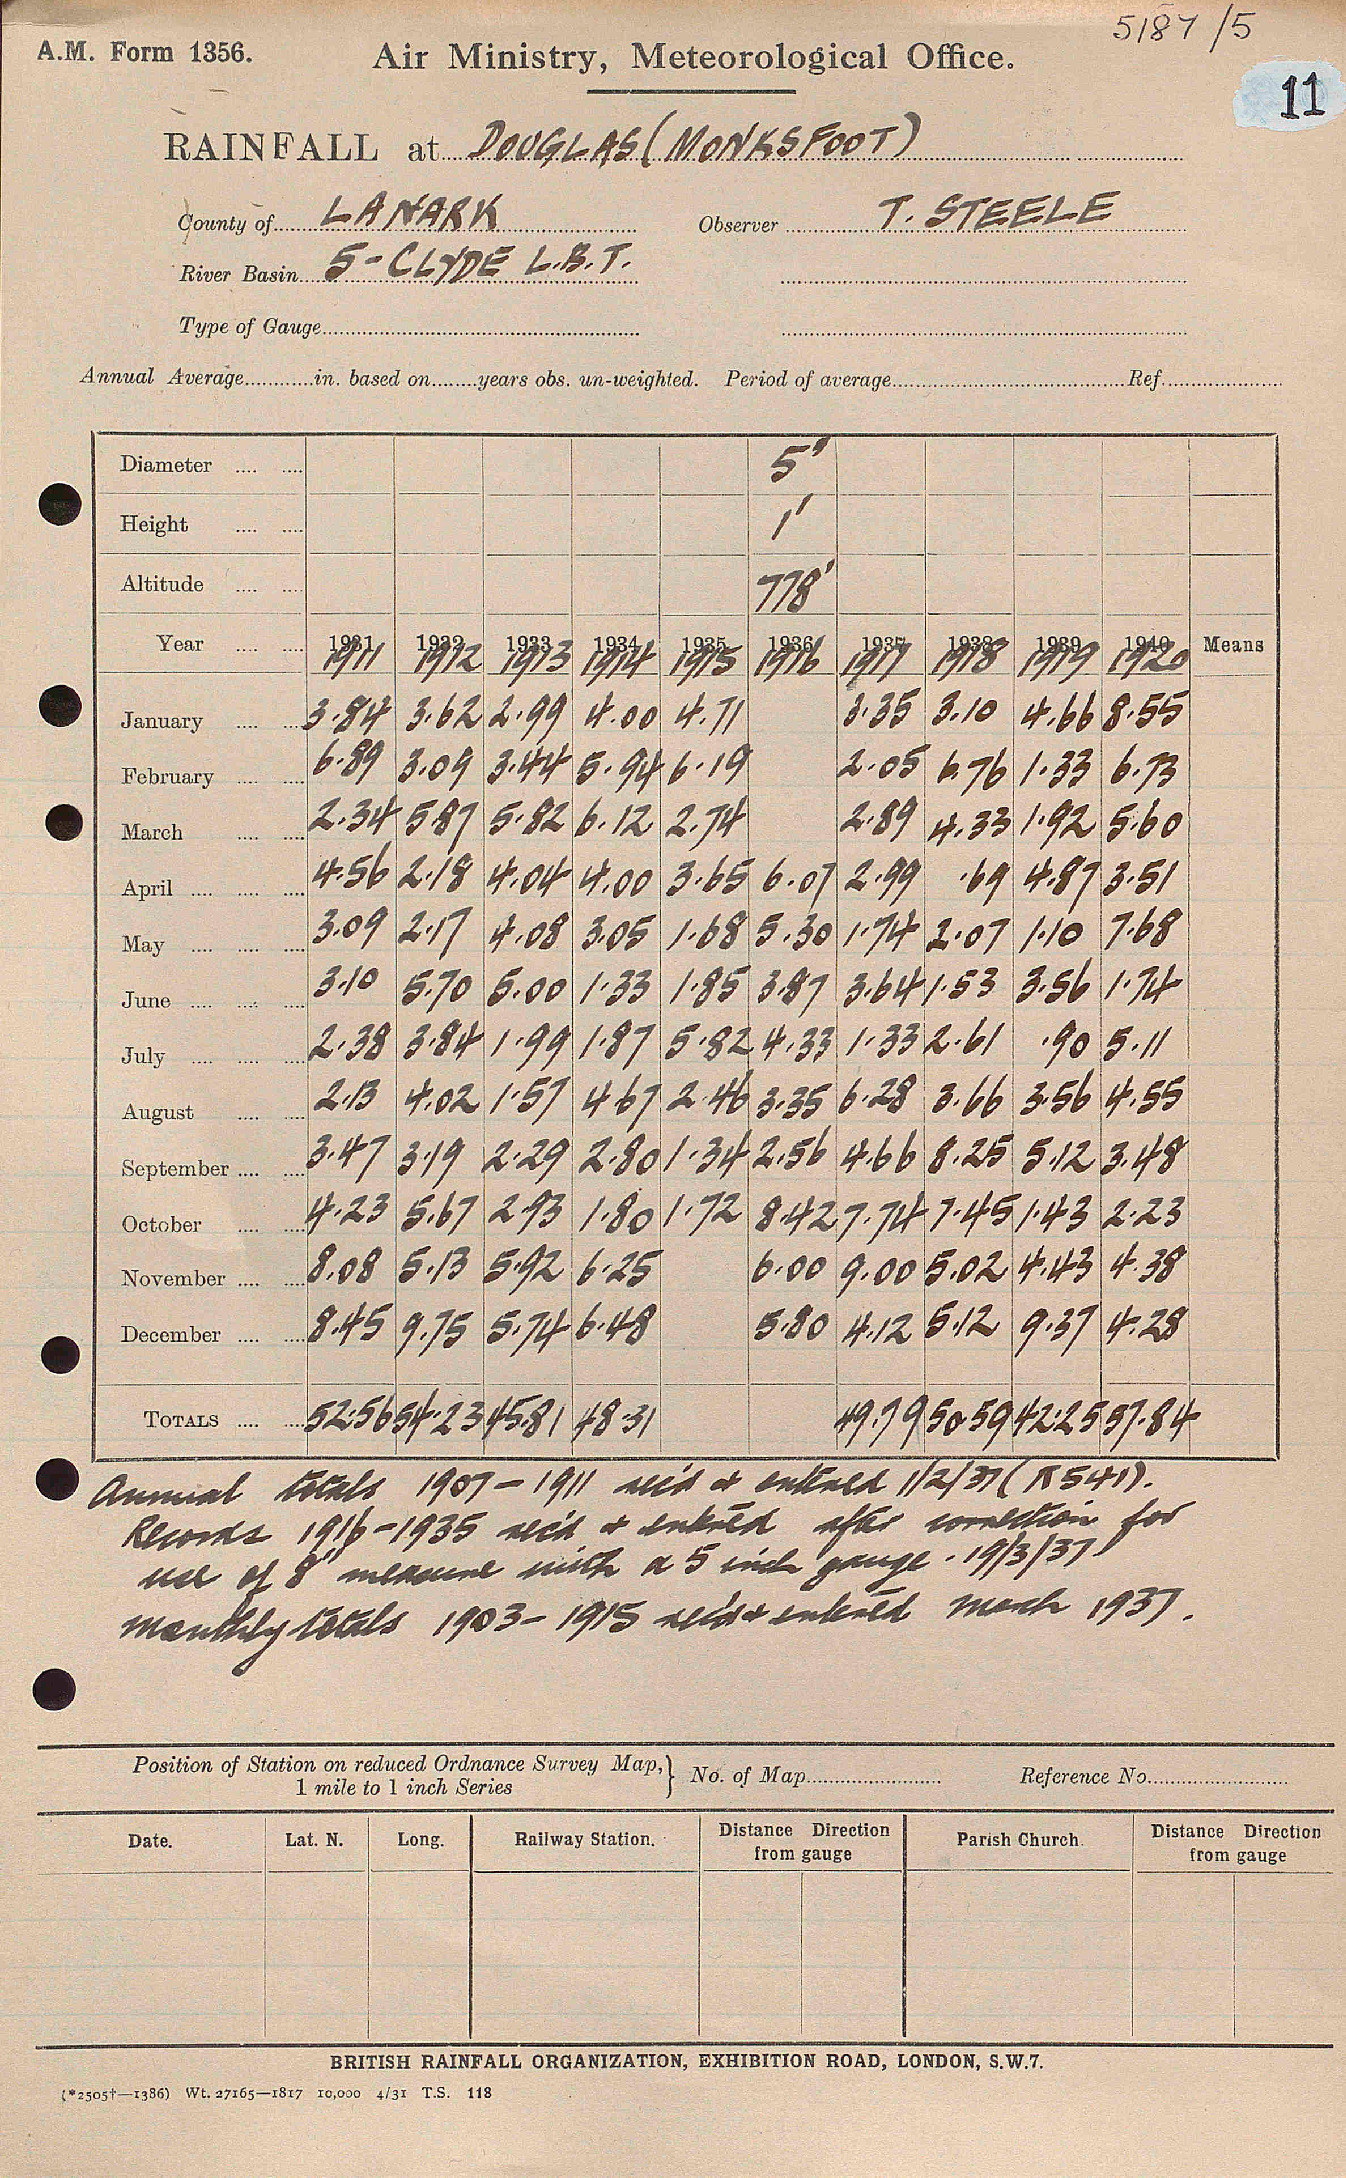 5187/5
A.M. Form 1356.
Air Ministry, Meteorological Office.
11
RAINFALL at DOUGLAS (MONKSFOOT)
County of LANARK Observer T. STEELE
River Basin 5-CLYDE L.B.T.
Type of Gauge
Annual Average in. based on years obs. un-weighted. Period of average Ref.
Diameter 5"
Height 1'
Altitude 778'
Year 1931 1932 1933 1934 1935 1936 1937 1938 1939 1940 Means
1911 1912 1913 1914 1915 1916 1917 1918 1919 1920
January 3.84 3.62 2.99 4.00 4.71 3.35 3.10 4.66 8.55
February 6.89 3.09 3.44 5.94 6.19 2.05 6.76 1.33 6.73
March 2.34 5.87 5.82 6.12 2.74 2.89 4.33 1.92 5.60
April 4.56 2.18 4.04 4.00 3.65 6.07 2.99 .69 4.87 3.51
May 3.09 2.17 4.08 3.05 1.68 5.30 1.74 2.07 1.10 7.68
June 3.10 5.70 5.00 1.33 1.85 3.87 3.64 1.53 3.56 1.74
July 2.38 3.84 1.99 1.87 5.82 4.33 1.33 2.61 .90 5.11
August 2.13 4.02 1.57 4.67 2.46 3.35 6.28 3.66 3.56 4.55
September 3.47 3.19 2.29 2.80 1.34 2.56 4.66 8.25 5.12 3.48
October 4.23 5.67 2.93 1.80 1.72 8.42 7.74 7.45 1.43 2.23
November 8.08 5.13 5.92 6.25 6.00 9.00 5.02 4.43 4.38
December 8.45 9.75 5.74 6.48 5.80 4.12 5.12 9.37 4.28
TOTALS 52.56 54.23 45.81 48.31 49.79 50.59 42.25 57.84
Annual totals 1907-1911 rec'd & entered 1/2/37 (R541).
Records 1916-1935 rec'd & entered after correction for
use of 8" measure with a 5 inch gauge. 19/3/37
Monthly totals 1903-1915 rec'd & entered March 1937.
Position of Station on reduced Ordnance Survey Map, } No. of Map Reference No.
1 mile to 1 inch Series
Date. Lat. N. Long. Railway Station. Distance Direction from gauge Parish Church. Distance Direction from gauge
BRITISH RAINFALL ORGANIZATION, EXHIBITION ROAD, LONDON, S.W.7.
(*2505†—1386) Wt. 27165—1817 10,000 4/31 T.S. 118